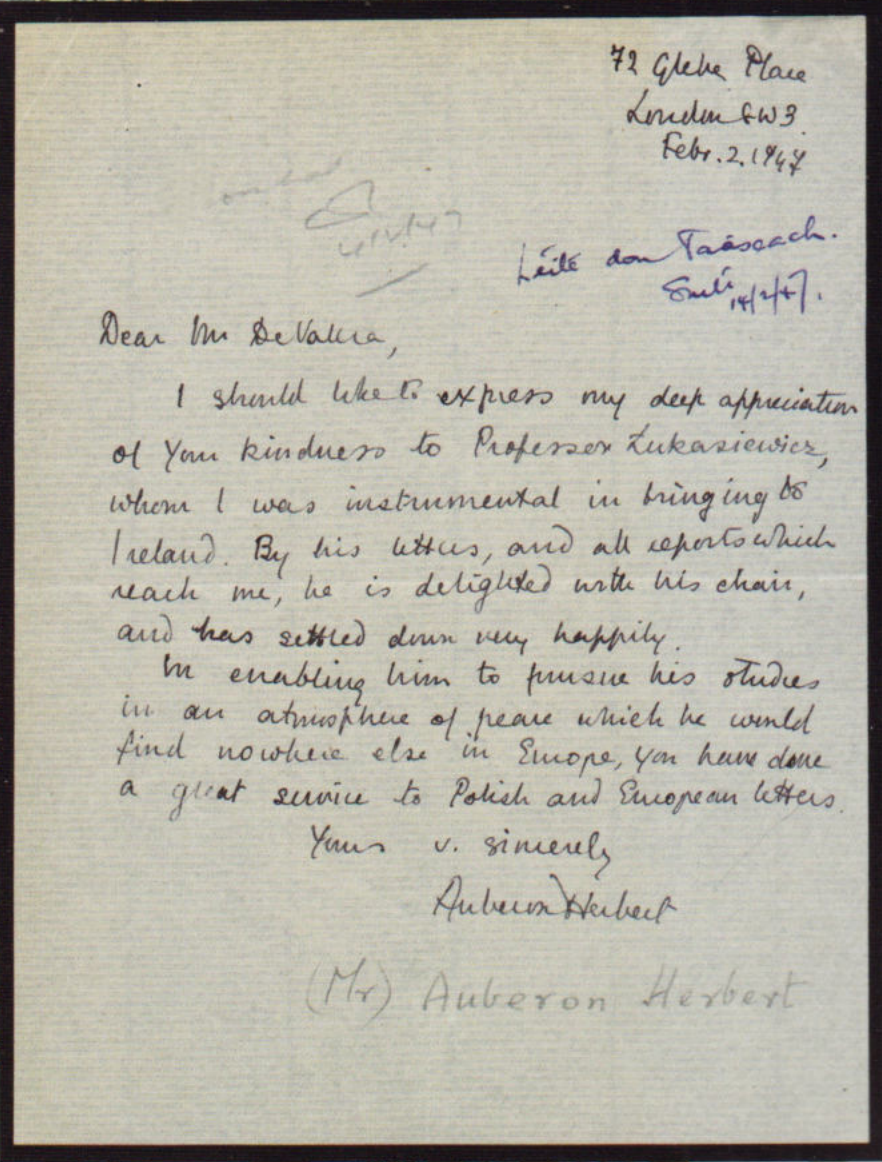 72 Glebe Place
London SW3.
Febr. 2. 1947
4/2/47
Léite don Taoiseach.
14/2/47.
Dear Mr DeValera,
I should like to express my deep appreciation
of your kindness to Professor Łukasiewicz,
whom I was instrumental in bringing to
Ireland. By his letters, and all reports which
reach me, he is delighted with his chair,
and has settled down very happily.
In enabling him to pursue his studies
in an atmosphere of peace which he would
find nowhere else in Europe, you have done
a great service to Polish and European letters.
Yours v. sincerely
Auberon Herbert
(Mr) Auberon Herbert